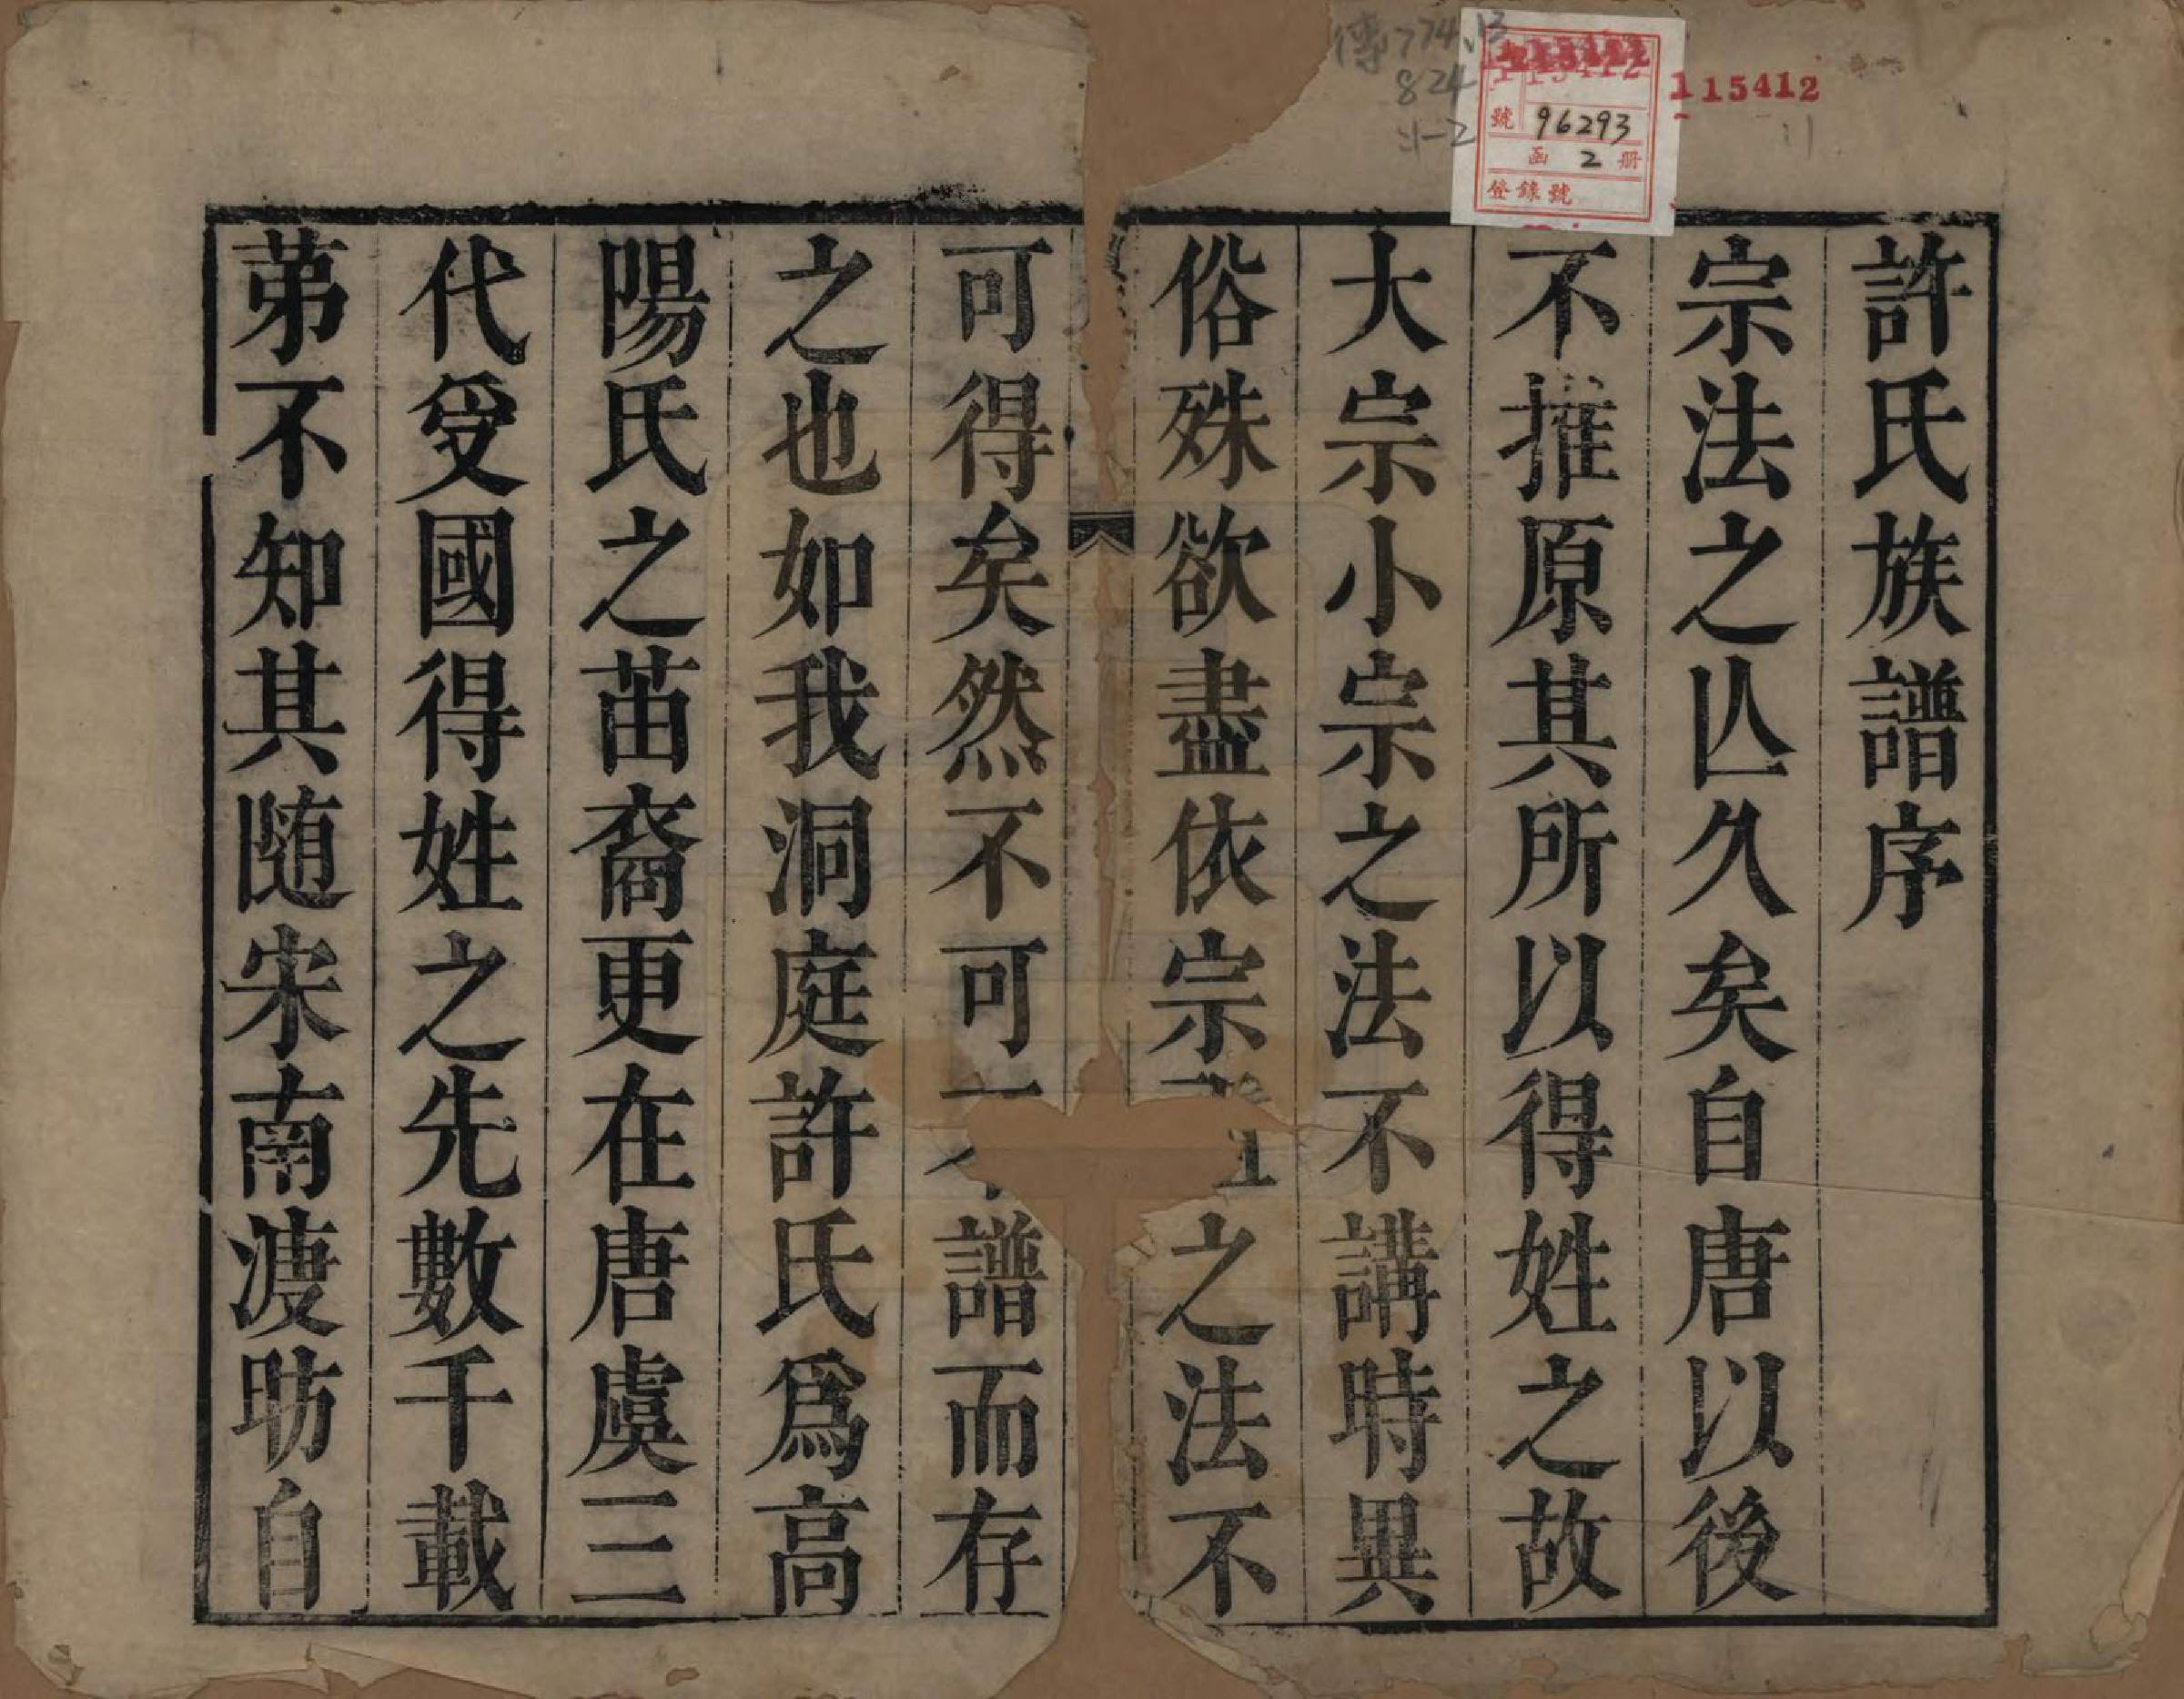 許氏族譜序
宗法之亾久矣自唐以後
不推原其所以得姓之故
大宗小宗之法不講時異
俗殊欲盡依宗之法不
可得矣然不可譜而存
之也如我洞庭許氏爲高
陽氏之苗裔更在唐虞三
代受國得姓之先數千載
苐不知其随宋南渡昉自
115412
號 96293
函 2 册
登錄號
774.13
824